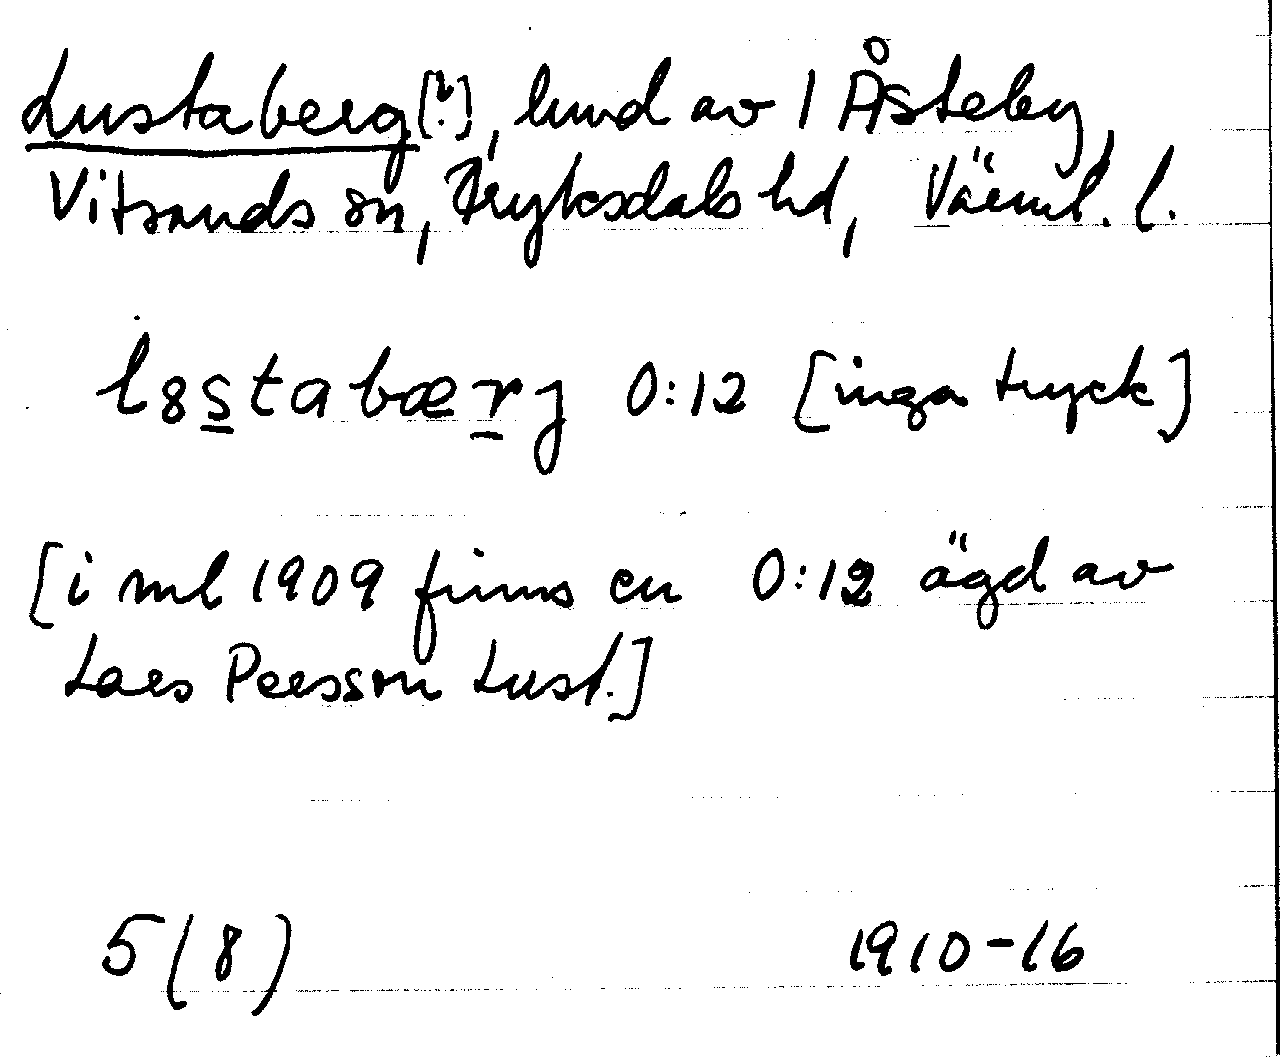 Lustaberg[?], lund av 1 Åsteby,
Vitsands sn, Fryksdals hd, Värml. l.
l8s̲tabær̲j 0:12 [inga tryck]
[i ml 1909 finns en 0:12 ägd av
Lars Persson Lust.]
5(8) 1910-16